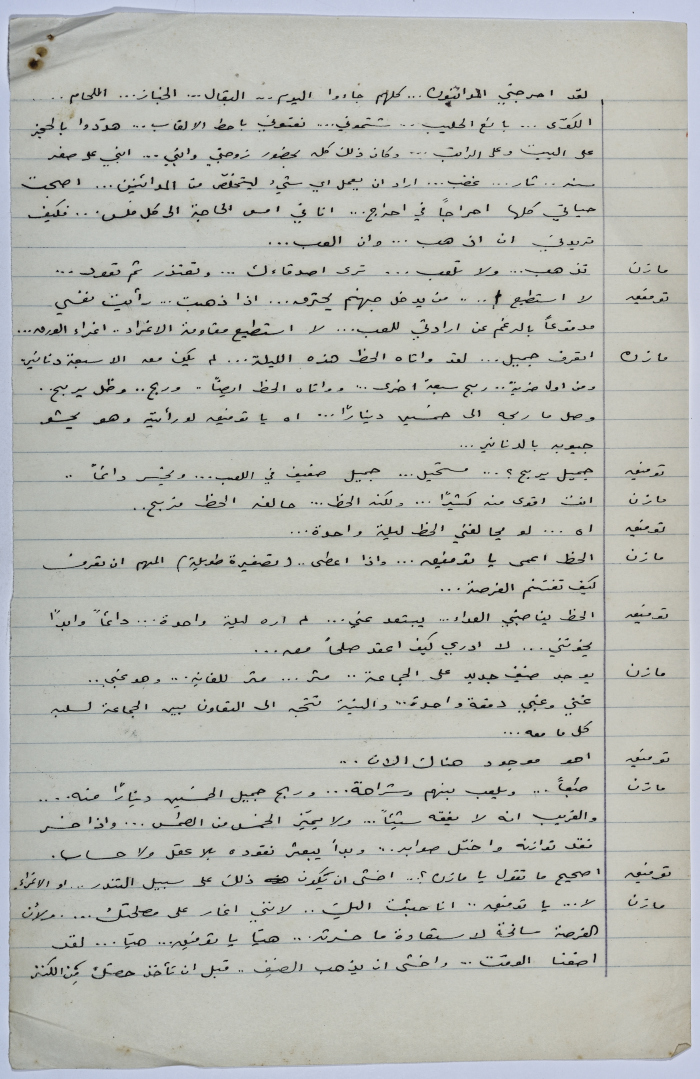 لقد احرجني المدائنون... كلهم جاءوا اليوم... البقال... الخباز... اللحام....
الكوّى... بائع الحليب... شتموني... نعتوني باحط الالقاب... هددوا بالحجز
على البيت وعلى الراتب... وكان ذلك كله بحضور زوجتي وابني... ابني على صغر
سنه... ثار... غضب... اراد ان يعمل اي شيء ليتخلص من المدائنين... اصبحت
حياتي كلها احراجاً في احراج... انا في امس الحاجة الى كل فلس... فكيف
تريدني ان اذهب... وان العب...
مازن تذهب... ولا تلعب... ترى اصدقاءك... وتعتذر ثم تعود...
توفيق لا استطيع... من يدخل جهنم يحترق... اذا ذهبت... رأيت نفسي
مدفوعاً بالرغم عن ارادتي للعب... لا استطيع مقاومة الاغراء.. اغراء الورق...
مازن اتعرف جميل... لقد واتاه الحظ هذه الليلة... لم يكن معه الا سبعة دنانير
ومن اول ضربة.. ربح سبعة اخرى... وواتاه الحظ ايضاً.. وربح.. وظل يربح..
وصل ما ربحه الى خمسين ديناراً... اه يا توفيق لو رأيته وهو يحشو
جيوبه بالدنانير...
توفيق جميل يربح؟... مستحيل... جميل ضعيف في اللعب... ويخسر دائماً..
مازن انت اقوى منه كثيراً... ولكنه الحظ... حالفه الحظ فربح..
توفيق اه... لو يحالفني الحظ ليلة واحدة...
مازن الحظ اعمى يا توفيق... واذا اعطى.. (تصفيرة طويلة) المهم ان تعرف
كيف تغتنم الفرصة...
توفيق الحظ يناصبني العداء... يبتعد عني... لم اره ليلة واحدة... دائماً وابداً
يخونني... لا ادري كيف اعقد صلحاً معه...
مازن يوجد ضيف جديد على الجماعة.. مثر... مثر للغاية... وهو غبي..
غني وغبي دفعة واحدة... والنية تتجه الى التعاون بين الجماعة لسلبه
كل ما معه...
توفيق اهو موجود هناك الان...
مازن طبعاً... ويلعب بنهم وشراهة... وربح جميل الخمسين ديناراً منه....
والغريب انه لا يفقه شيئاً... ولا يميّز الخمس من... واذا خسر
فقد توازنه واختل صوابه... وبدأ يبعثر نقوده بلا عقل ولا حساب.
توفيق اصحيح ما تقول يا مازن؟.. اخشى ان يكون ذلك على سبيل التندر... او الاغراء
مازن لا... يا توفيق.. انا جئت اليك.. لانني اغار على مصلحتك... ولأن
الفرصة سانحة لاستعادة ما خسرته... هيّا يا توفيق... هيّا... لقد
اضعنا الوقت... واخشى ان يذهب الضيف.. قبل ان تأخذ حصتك من الكنز